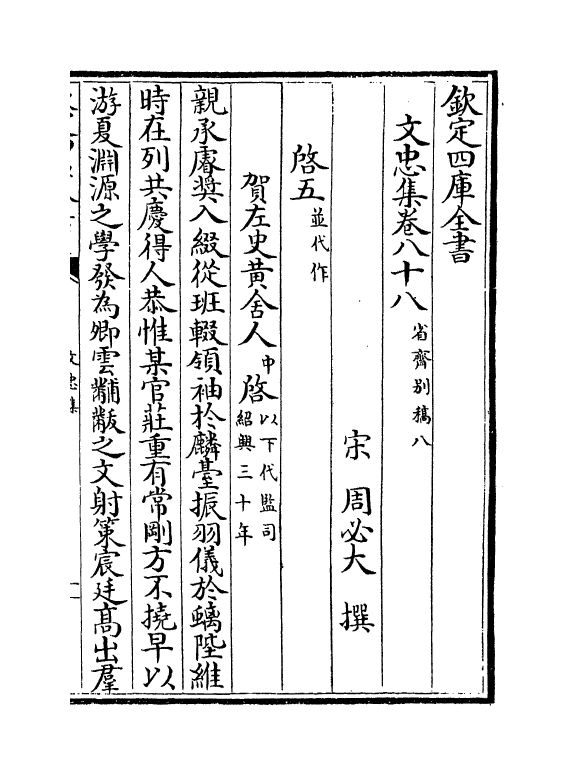 欽定四庫全書
文忠集卷八十八 省齋別稿八
宋 周必大 撰
啓五 並代作
賀左史黃舍人中啓 以下代監司紹興三十年
親承睿奬入綴從班輟領袖於麟臺振羽儀於螭陛維
時在列共慶得人恭惟某官莊重有常剛方不撓早以
游夏淵源之學發為卿雲黼黻之文射策宸廷髙出羣